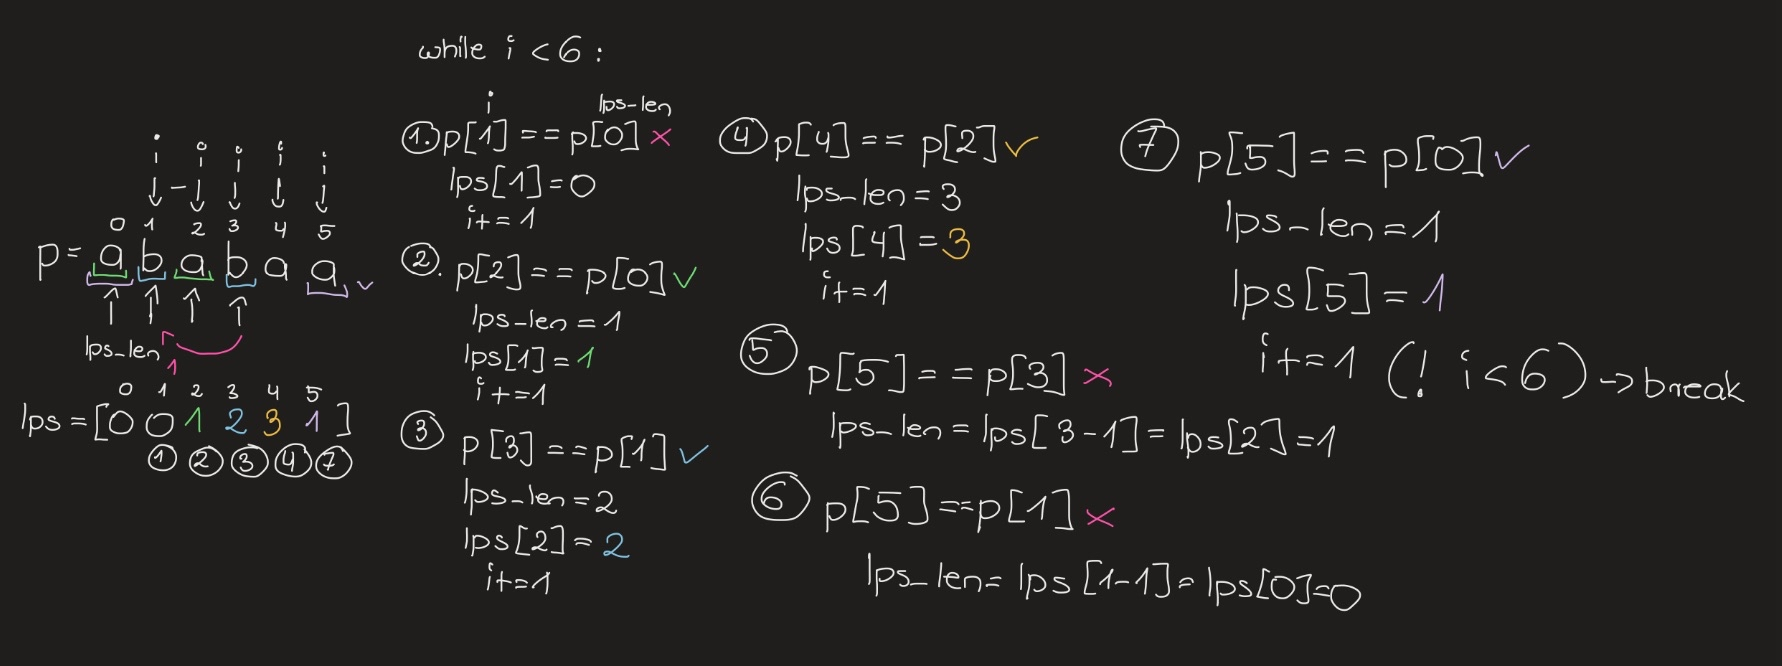 while i < 6 :
i i i i i
0 1 2 3 4 5
p = a b a b a a ✓
lps_len
1
0 1 2 3 4 5
lps = [0 0 1 2 3 1 ]
① ② ③ ④ ⑦
i lps-len
①. p[1] == p[0] ✗
lps[1] = 0
i+=1
②. p[2] == p[0] ✓
lps-len = 1
lps[1] = 1
i+=1
③ p[3] == p[1] ✓
lps-len = 2
lps[2] = 2
i+=1
④ p[4] == p[2] ✓
lps-len = 3
lps[4] = 3
i+=1
⑤ p[5] == p[3] ✗
lps-len = lps[3-1] = lps[2] = 1
⑥ p[5] == p[1] ✗
lps_len = lps[1-1] = lps[0] = 0
⑦ p[5] == p[0] ✓
lps-len = 1
lps[5] = 1
i+=1 (! i<6) -> break